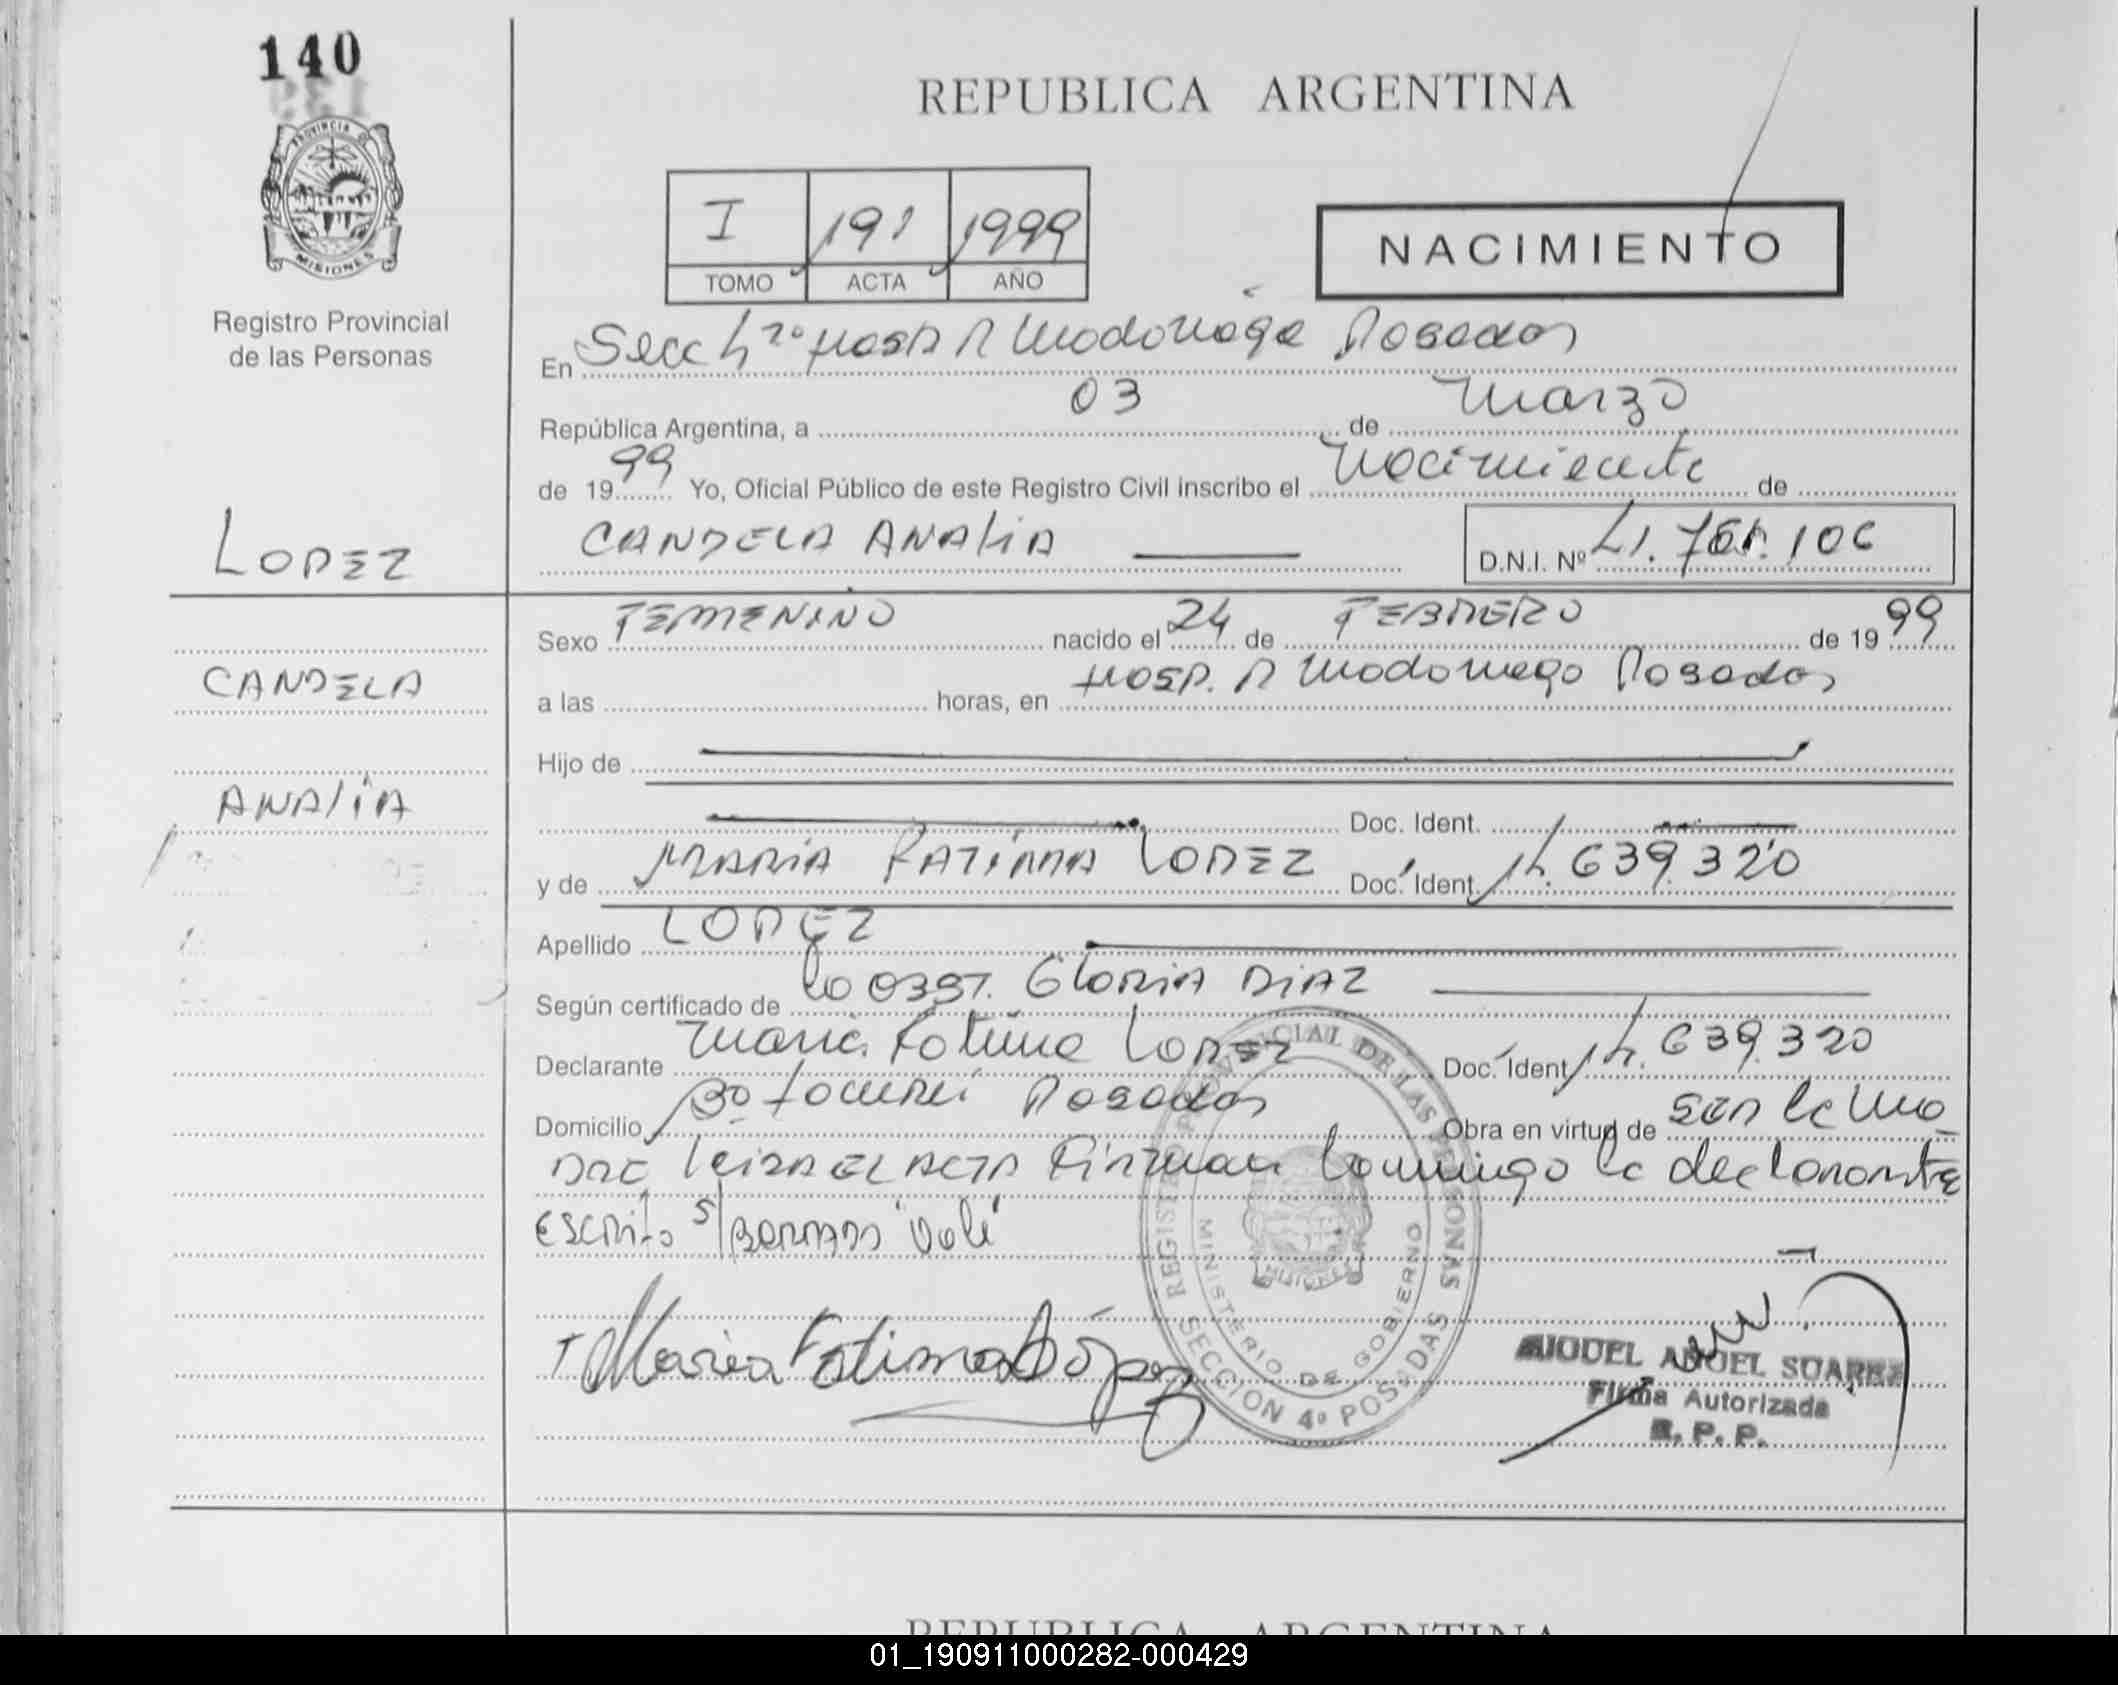 140
REPUBLICA ARGENTINA
PROVINCIA DE
MISIONES
Registro Provincial
de las Personas
I 191 1999
TOMO ACTA AÑO
NACIMIENTO
En Secc 4ta Hosp R Madariaga Posadas
República Argentina, a 03 de Marzo
de 1999 Yo, Oficial Público de este Registro Civil inscribo el Nacimiento de
LOPEZ
CANDELA ANALIA
D.N.I. Nº 41. 106
Sexo FEMENINO nacido el 24 de FEBRERO de 1999
CANDELA
a las horas, en Hosp. R Madariaga Posadas
Hijo de
ANALIA
Doc. Ident.
y de MARIA FATIMA LOPEZ Doc. Ident. 14.639.320
Apellido LOPEZ
Según certificado de la Obst. GLORIA DIAZ
Declarante Maria Fatima Lopez Doc. Ident. 14.639.320
Domicilio Bº Posadas Obra en virtud de ser la Ma-
dre Leida el acta Firman conmigo la declarante
Escrito s/ "Vale"
Maria Fatima López
REGISTRO PROVINCIAL DE LAS PERSONAS
MINISTERIO DE GOBIERNO
MISIONES
SECCION 4º POSADAS
MIGUEL ANGEL SUAREZ
Firma Autorizada
R. P. P.
REPUBLICA ARGENTINA
01_190911000282-000429